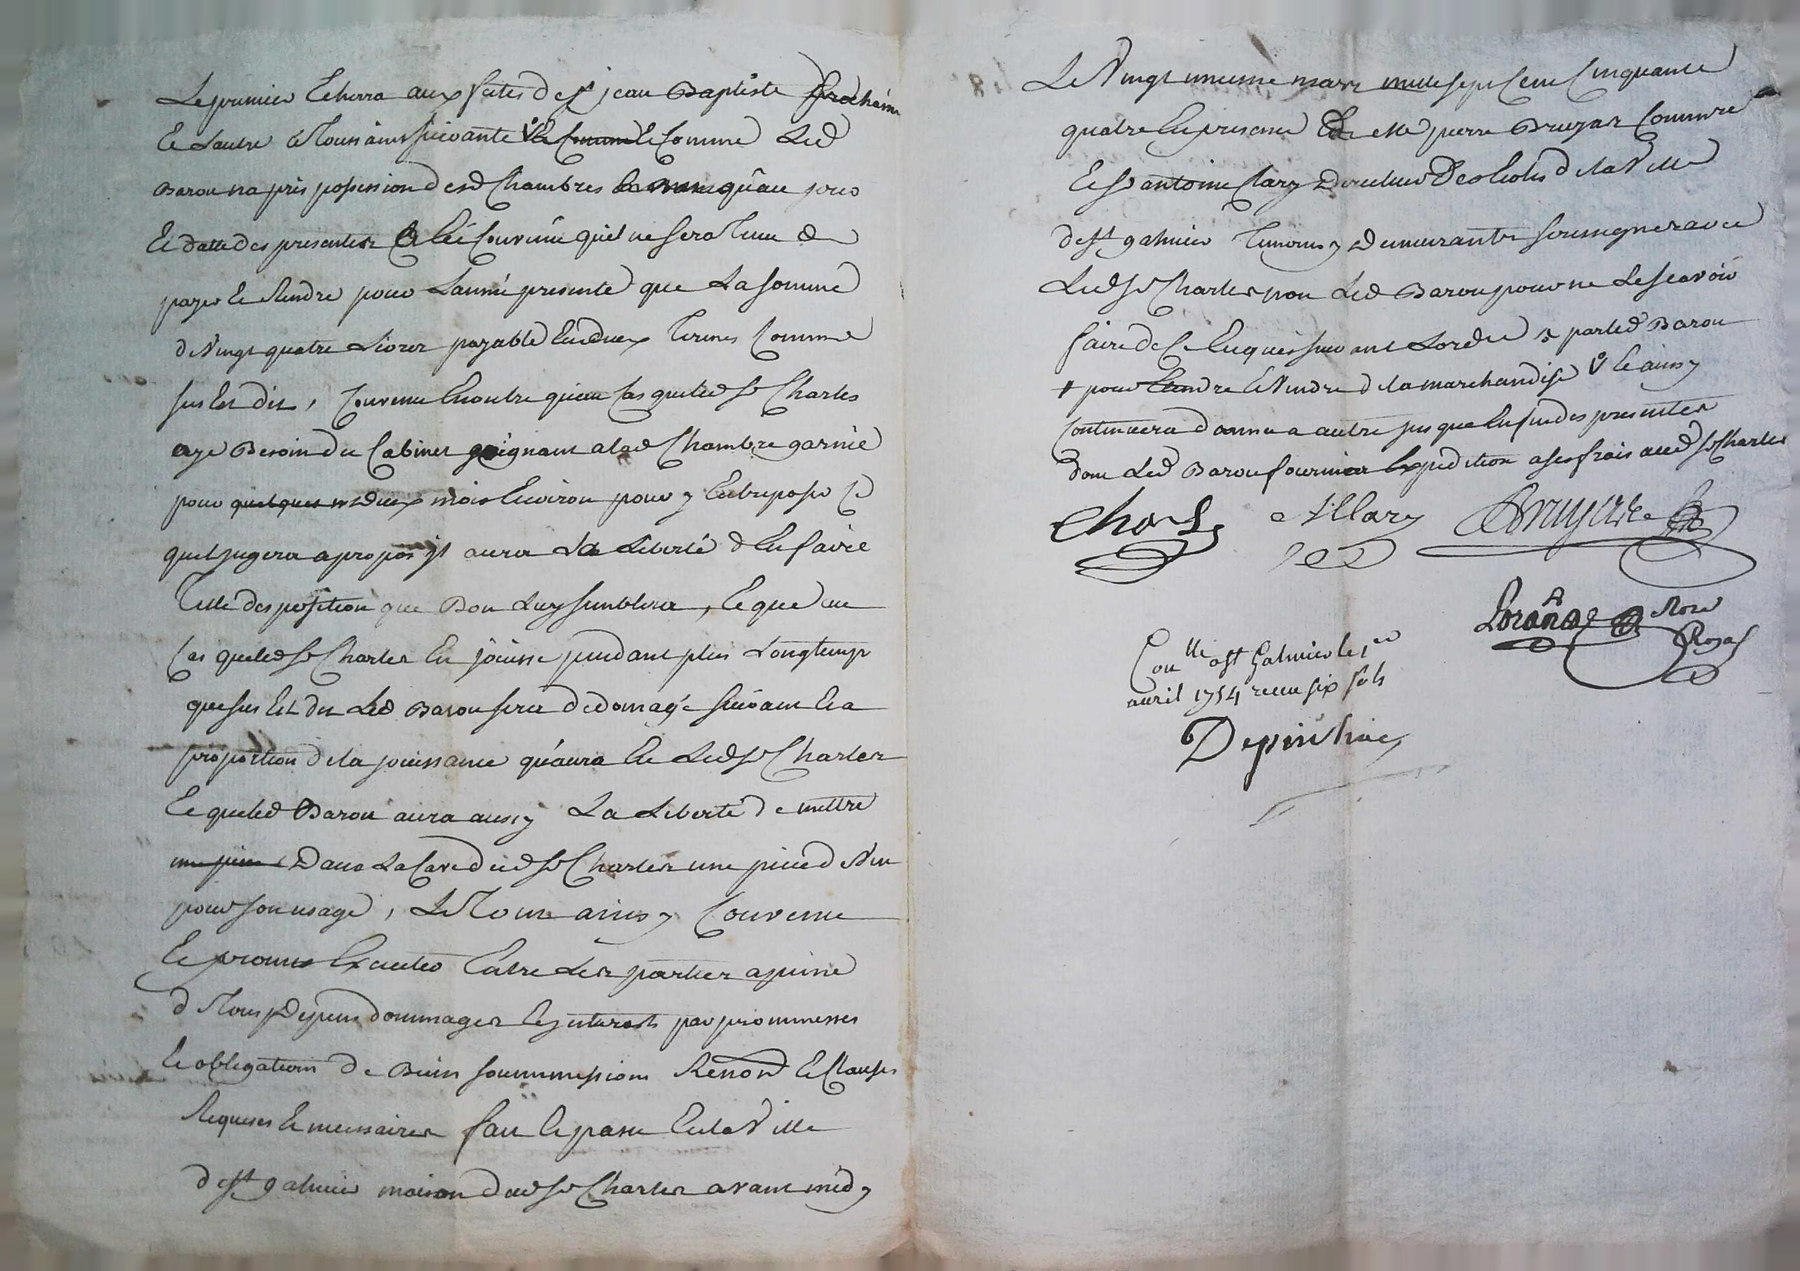 Le premier Echerra aux fetes de st jean Baptiste prochaine
Et Lautre a Toussaints suivante Et Comme Led
Baron na pris possession desd Chambres quau jour
Et datte des presentes Il Est Convenu quil ne sera Tenu de
payer Et Rendre pour Lanné presente que La somme
de Vingt quatre Livres payable En deux Termes Comme
sus Est dit, Convenu En outre quau Cas que led Sr Charles
aye Besoin du Cabinet joignant a lad Chambre garnie
pour deux mois Environ pour y Entreposer Ce
quil jugera apropos jl aura La Liberté d En faire
Telle disposition que Bon Luy semblera, Et que au
Cas que led Sr Charles En jouisse pendant plus Longtemps
que sus Est dit Led Baron sera dedomagé suivant La
proportion de la jouissance quaura Eu Led Sr Charles
Et que led Baron aura aussy La Liberté de mettre
Dans La Cave dud Sr Charles une piece de Vin
pour son usage, Le Tout ainsy Convenu
Et promis Executer Entre Les parties a peine
de Tous Depens dommages Et jnterests par prommesses
Et obligations de Biens soummissions Renond Et Clauses
Requises Et necessaires fait Et passé En la Ville
de st galmier maison dud Sr Charles avant midy
Le Vingt uneme mars mille sept Cent Cinquante
quatre En presence de Me pierre Bruyas Commre
Et Sr antoine Clary Directeur des de la Ville
de st galmier Temoins y demeurants soussignes avec
Led Sr Charles non Led Baron pour ne Le scavoir
faire de ce Enquis suivant Lordre par led Baron
pour Et Vendre de la marchandise Et ainsy
Continuera danné a autre jusque En fin des presentes
dont Led Baron fournira Expedition a ses frais aud Sr Charles
Charles Clary Bruyas
Nore
Royal
Conlle a st Galmier le 1er
avril 1754 recu six sols